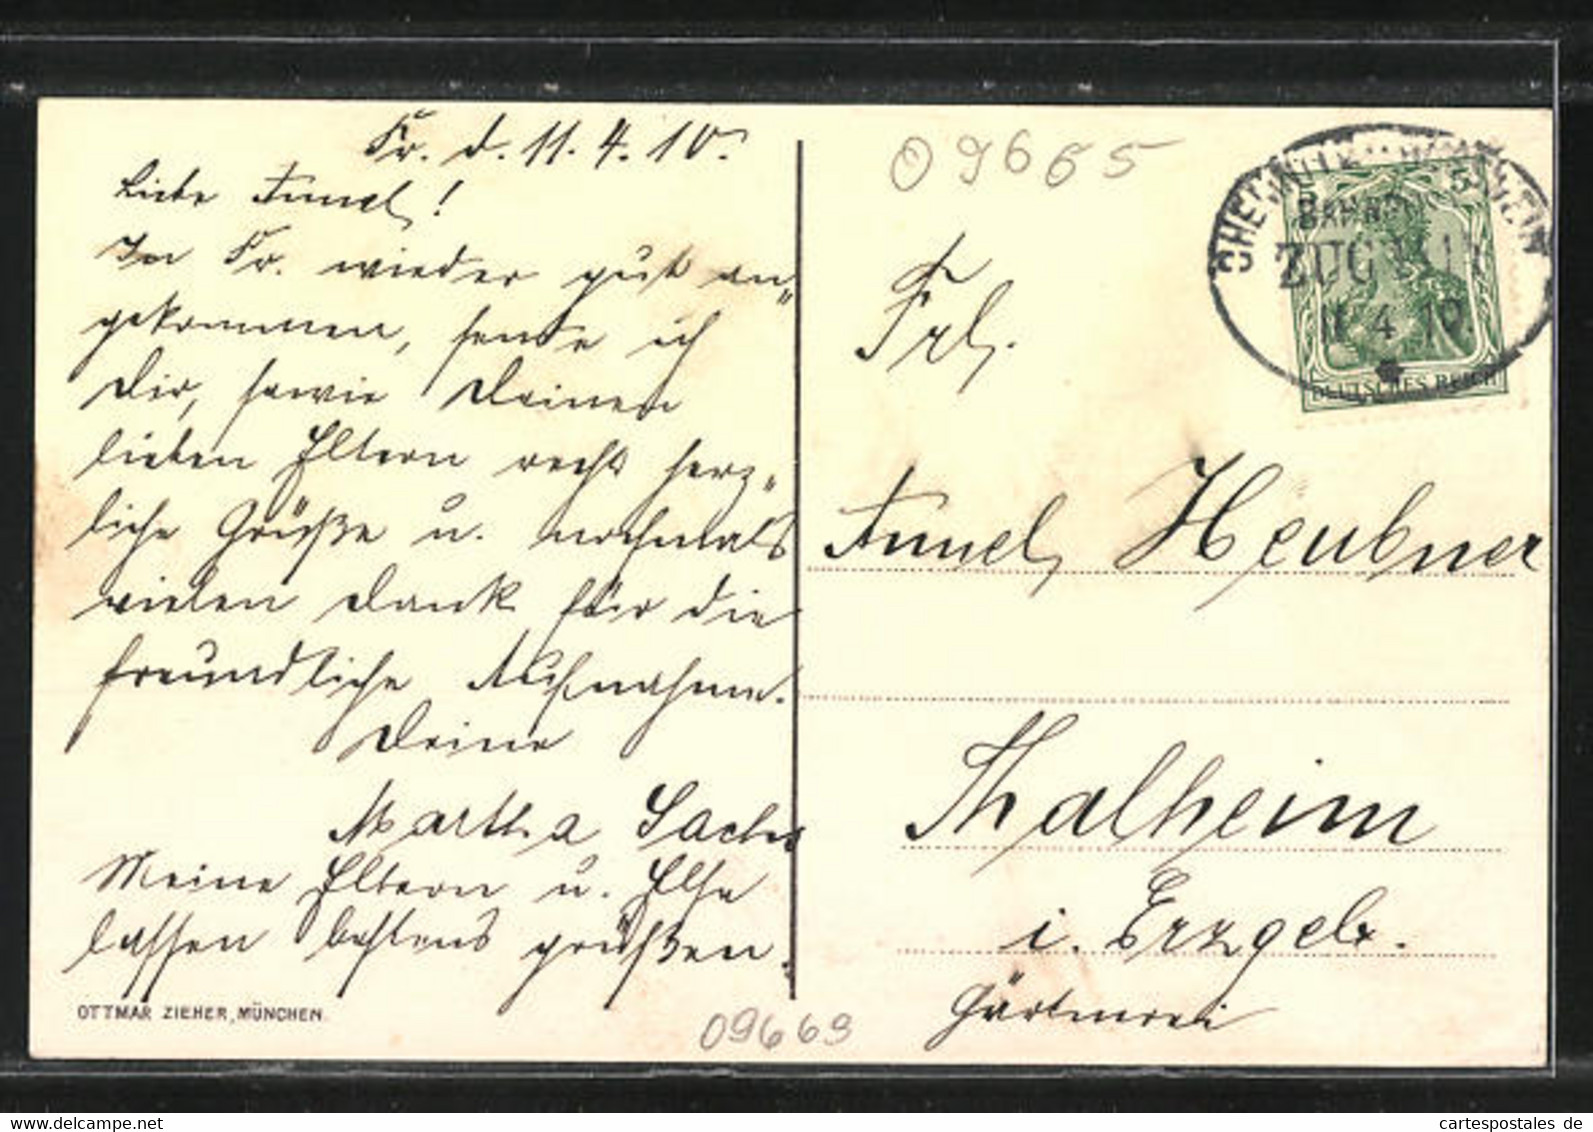 Fr. d. 11. 4. 10.
Liebe Annel!
In Fr. wieder gut an„
gekommen, sende ich
Dir, sowie Deinen
lieben Eltern recht herz„
liche Grüße u. nochmals
vielen Dank für die
freundliche Aufnahme.
Deine
Martha Sachs
Meine Eltern u. Else
lassen bestens grüßen.
OTTMAR ZIEHER, MÜNCHEN.
09669
09665
CHEMNITZ
BAHNPOST
ZUG
11 4 10
5 5
DEUTSCHES REICH
Frl.
Annel Heubner
Thalheim
i. Erzgeb.
Gärtnerei
cartespostales de